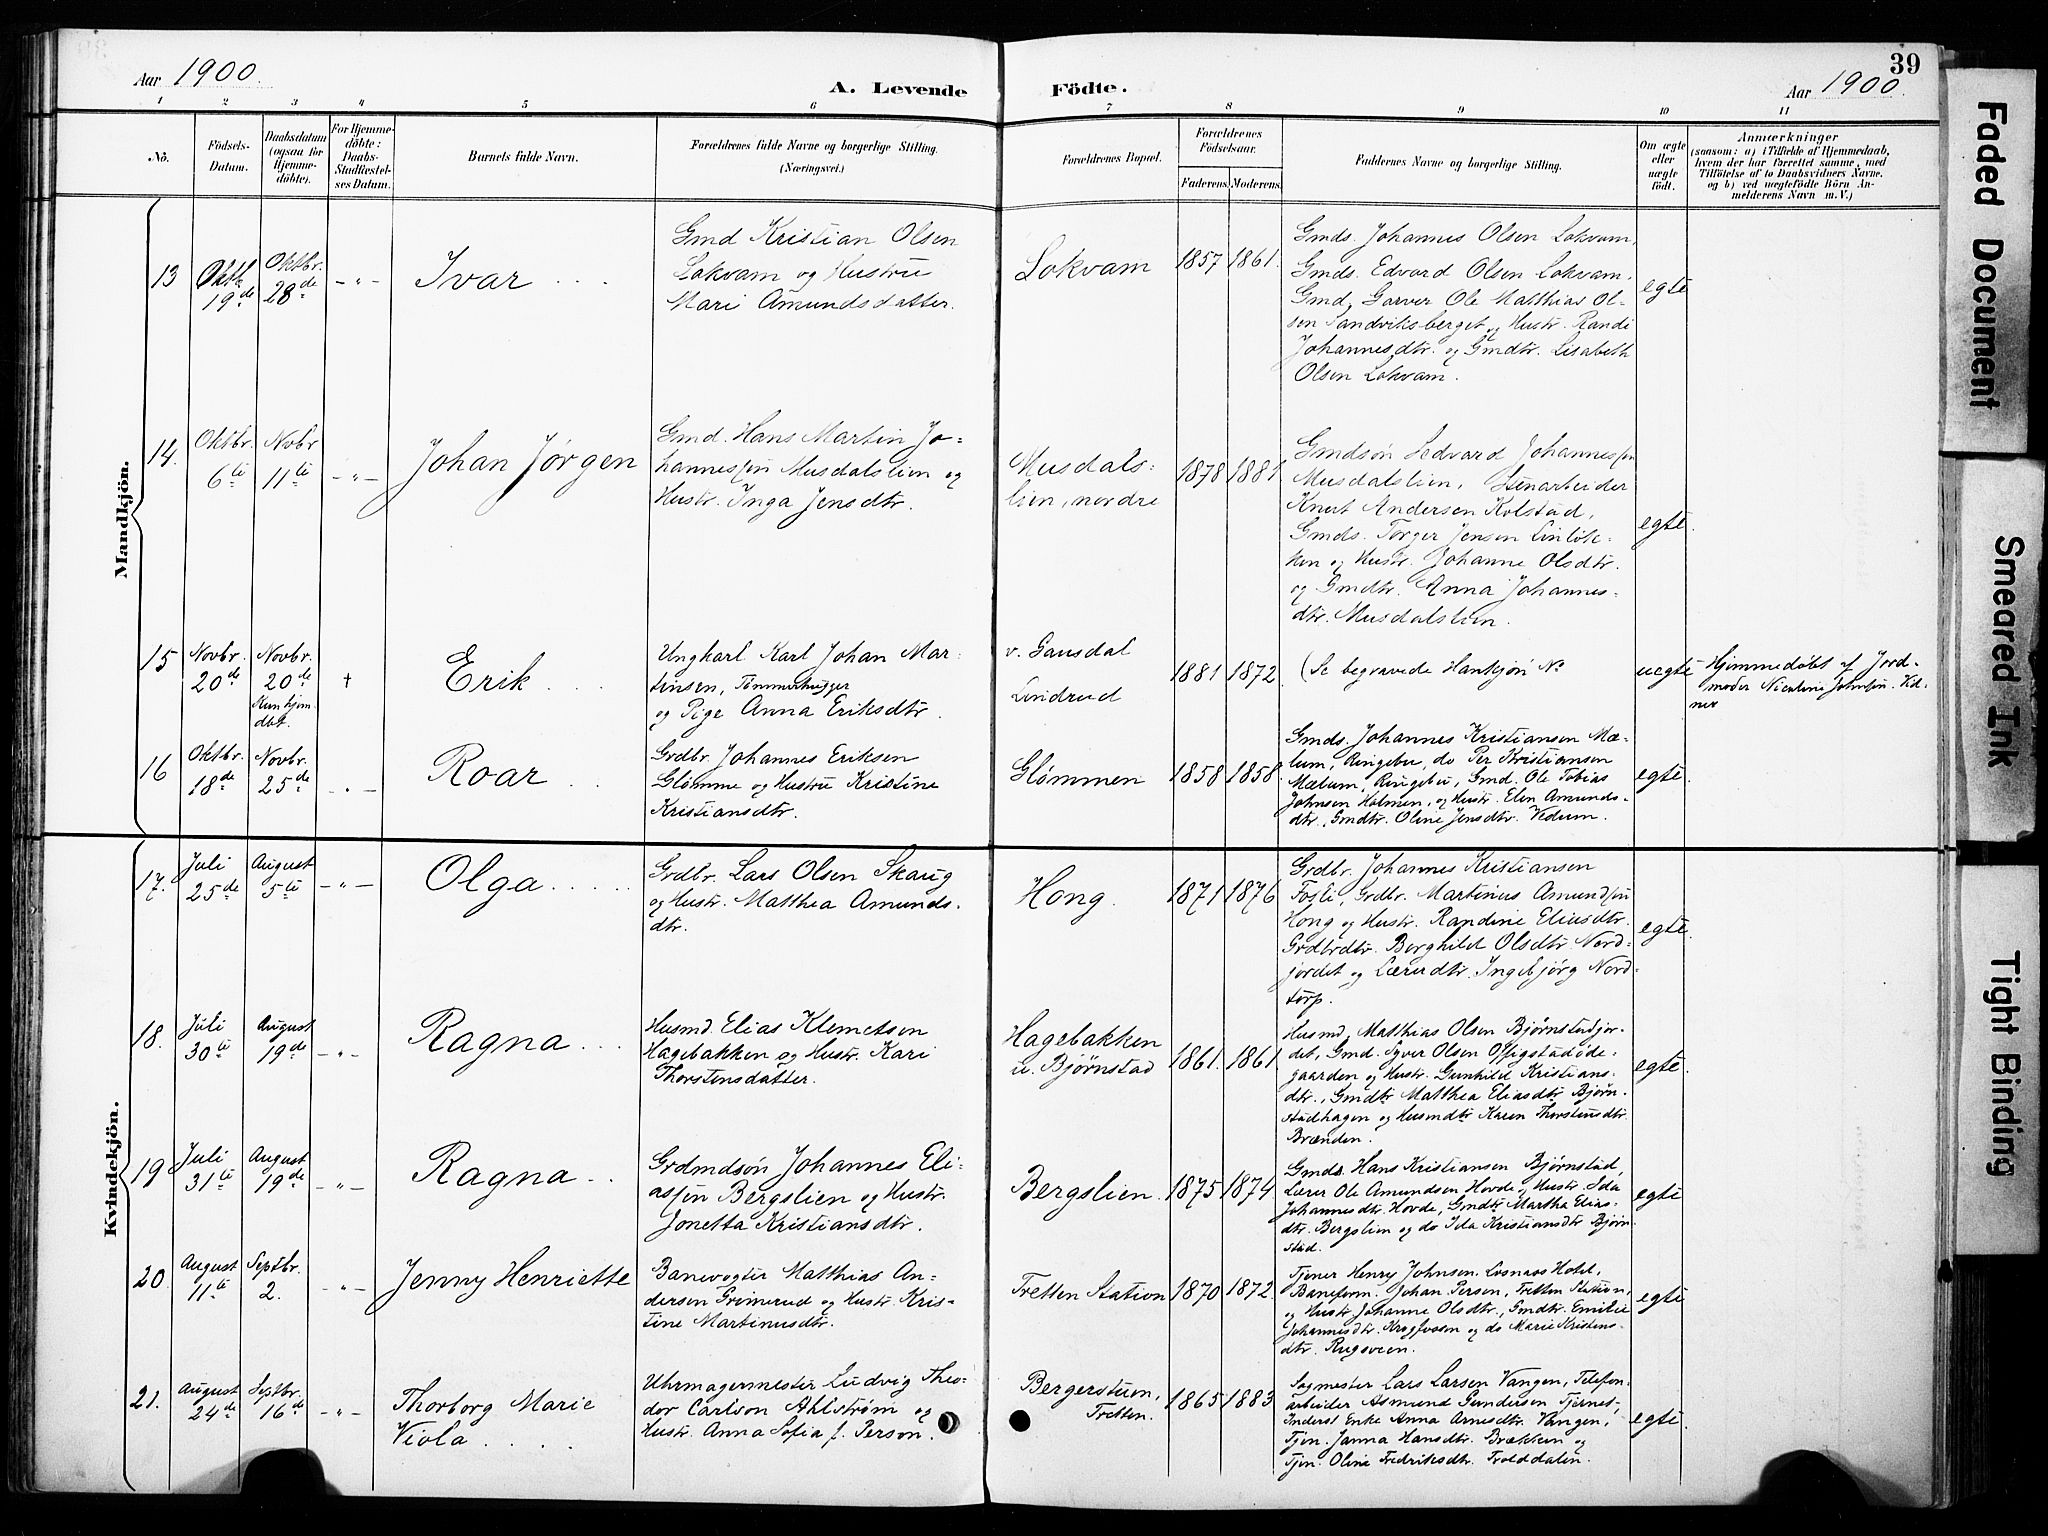 39
Aar 1900.
A. Levende Födte.
Aar 1900.
1 2 3 4 5 6 7 8 9 10 11
No.
Födsels-
Datum.
Daabsdatum
(ogsaa for
Hjemme-
döbte).
For Hjemme-
döbte:
Daabs-
Stadfæstel-
ses Datum.
Barnets fulde Navn.
Forældrenes fulde Navne og borgerlige Stilling.
(Næringsvei.)
Forældrenes Bopæl.
Forældrenes
Födselsaar.
Faderens. Moderens.
Faddernes Navne og borgerlige Stilling.
Om ægte
eller
uægte
födt.
Anmærkninger
(saasom: a) i Tilfælde af Hjemmedaab,
hvem der har forrettet samme, med
Tilföielse af to Daabsvidners Navne.
og b) ved uægtefödte Börn An-
melderens Navn m.V.)
Mandkjön.
13
Oktb.
19de
Oktbr.
28de
-"-
Ivar
Gmd Kristian Olsen
Lokvam og Hustru
Mari Amundsdatter.
Lokvam
1857 1861.
Gmds. Johannes Olsen Lokvam,
Gmds. Edvard Olsen Lokvam.
Gmd. Garver Ole Matthias Ol-
sen Sandviksberget og Hustr. Randi
Johannesdtr. og Gmdtr. Lisabeth
Olsen Lokvam.
egte
14.
Oktbr.
6te
Novbr
11te
-"-
Johan Jørgen
Gmd. Hans Martin Jo-
hannessen Musdalslien og
Hustr. Inga Jensdtr.
Musdals-
lien, nordre
1878 1881.
Gmdsøn Sedvard Johannessen
Musdalslien, Stenarbeider
Knut Andersen Kolstad,
Gmds. Torger Jensen Linløk-
ken og Hustr. Johanne Olsdtr.
og Gmdtr. Anna Johannes-
dtr. Musdalslien.
egte.
15
Novbr.
20de
Novbr.
20de
Kun hjem
dbt.
+
Erik
Ungkarl Karl Johan Mar-
tinsen, Tømmerhugger
og Pige Anna Eriksdtr.
v. Gausdal
Lindrud
1881 1872
(Se begravede Hankjøn No
uegte
Hjemmedøbt af Jord-
moder Nicoline Johnsen.
16
Oktbr.
18de
Novbr.
25de
-"-
Roar
Grdbr. Johannes Eriksen
Glømme og Hustru Kristine
Kristiansdtr.
Glømmen
1858 1858.
Gmds. Johannes Kristiansen Mæ-
lum, Ringebu, do Per Kristiansen
Mælum, Ringebu, Gmd. Ole Tobias
Johnsen Holmen, og Hustr. Elen Amunds-
dtr., Gmdtr. Oline Jensdtr. Vedum.
egte.
Kvindekjön.
17.
Juli
25de
August
5te
-"-
Olga
Grdbr. Lars Olsen Skaug
og Hustr. Matthea Amunds-
dtr.
Hong.
1871 1876
Grdbr. Johannes Kristiansen
Fosli, Grdbr. Martinius Amundsen
Hong og Hustr. Randine Eliasdtr.
Grdbrdtr. Borghild Olsdtr. Nord-
jordet og Lærerdtr. Ingebjørg Nord-
torp.
egte.
18.
Juli
30te
August
19de
-"-
Ragna
Husmd. Elias Klemetsen
Hagebakken og Hustr. Kari
Thorstensdatter.
Hagebakken
u. Bjørnstad
1861. 1861.
Husmd, Matthias Olsen Bjørnstadjor-
det, Gmd. Syver Olsen Offigstadøde-
gaarden og Hustr. Gunhild Kristians-
dtr., Gmdtr Matthea Eliasdtr. Bjørn-
stadhagen og Husmdtr Karen Thorstensdtr.
Brænden.
egte.
19
Juli
31te
August
19de
-"-
Ragna
Grdmdsøn Johannes Eli-
assen Bergslien og Hustr.
Jonetta Kristiansdtr.
Bergslien.
1875 1874
Gmds. Hans Kristiansen Bjørnstad,
Lærer Ole Amundsen Hovde og Hustr. Ida
Johannesdtr. Hovde, Gmdtr. Martha Elias-
dtr. Bergslien og do Ida Kristiansdtr Bjørn-
stad.
egte
20.
August
11te
Septbr.
2.
-"-
Jenny Henriette
Banevogter Matthias An-
dersen Grimerud og Hustr. Kris-
tine Martinusdtr.
Tretten Station
1870 1872.
Tjener Henry Johnsen. Losnaos Hotel,
Baneform. Johan Persen, Tretten Station,
og Hustr Johanne Olsdtr., Gmdtr. Emilie
Johannesdtr. Krogfossen og do Marie Kristens-
dtr. Rugsveen.
egte
21.
August
24de
Septbr.
16de
-"-
Thorborg Marie
Viola
Uhrmagermester Ludvig Theo-
dor Carlson Ahlström og
Hustr. Anna Sofia f. Person.
Bergerstuen,
Tretten.
1865 1883
Sagmester Lars Larsen Vangen, Telefon-
arbeider Asmund Gundersen Tjernet,
Inderst Enke Anna Arnesdtr. Vangen,
Tjen. Janna Hansdtr. Brækken og
Tjen. Oline Fredriksdtr. Trolddalen.
egte.
Faded Document
Smeared Ink
Tight Binding